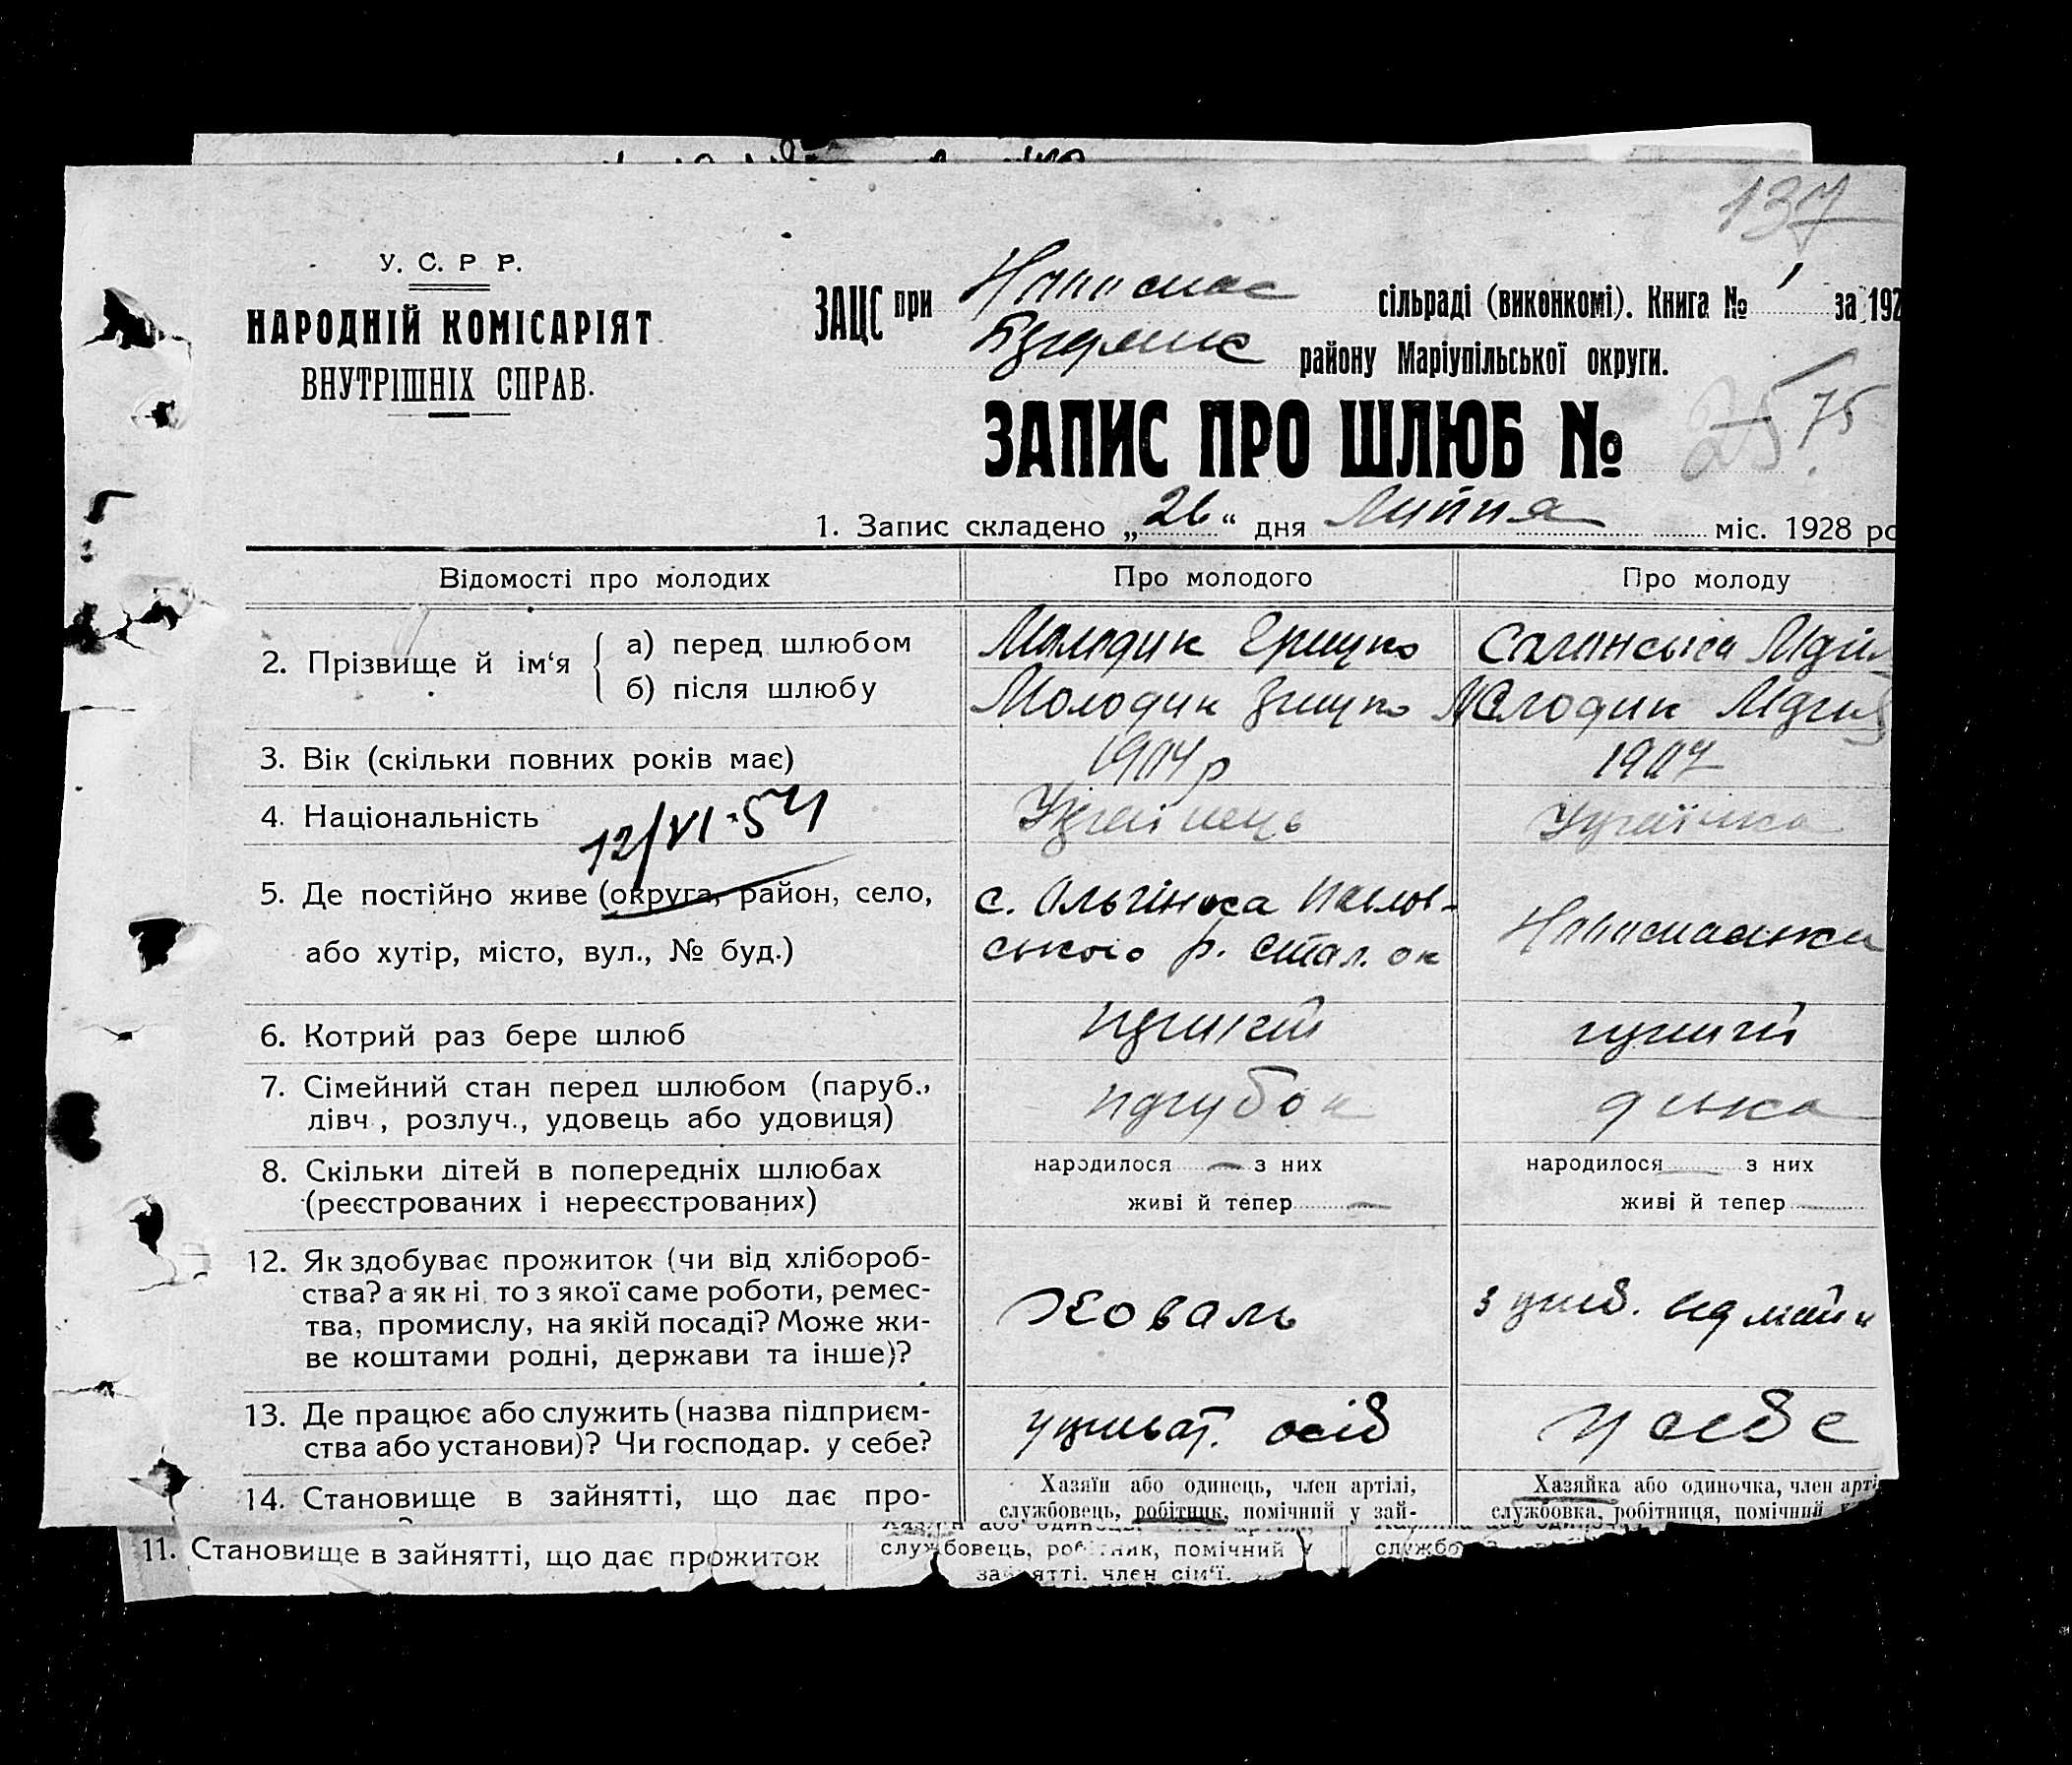 137
У. С. Р Р.
НАРОДНІЙ КОМІСАРІЯТ
ВНУТРІШНІХ СПРАВ.
ЗАЦС при сільраді (виконкомі). Книга № 1 за 192
району Маріупільської округи.
ЗАПИС ПРО ШЛЮБ № 25 75
1. Запис складено „26“ дня Липня міс. 1928 ро
Відомості про молодих
Про молодого
Про молоду
2. Прізвище й ім‘я
а) перед шлюбом
Молодик Грицко
б) після шлюбу
Молодик Грицко
Молодик
3. Вік (скільки повних років має)
1904 р
1907
4. Національність
Українець
Українка
12/VI-54
5. Де постійно живе (округа, район, село,
або хутір, місто, вул., № буд.)
с. Ольгінка Павлов-
ського р. Стал. ок
6. Котрий раз бере шлюб
первий
первий
7. Сімейний стан перед шлюбом (паруб.,
дівч., розлуч., удовець або удовиця)
парубок
8. Скільки дітей в попередніх шлюбах
(реєстрованих і нереєстрованих)
народилося — з них
живі й тепер —
народилося — з них
живі й тепер —
12. Як здобуває прожиток (чи від хлібороб-
ства? а як ні, то з якої саме роботи, ремес-
тва, промислу, на якій посаді? Може жи-
ве коштами родні, держави та інше)?
Коваль
13. Де працює або служить (назва підприєм-
ства або установи)? Чи господар. у себе?
у приват. осіб
у себе
14. Становище в зайнятті, що дає про-
Хазяїн або одинець, член артілі,
службовець, робітник, помічний у зай-
Хазяйка або одиночка, член арті
службовка, робітниця, помічний у
11. Становище в зайнятті, що дає прожиток
службовець, робітник, помічний у
зайнятті, член сім‘ї.
службо